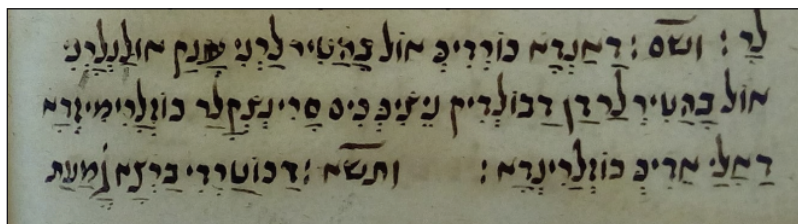 לַר : ושם : דַאַנְדָא כוֹרְדִיכּ אוֹל בָּהַטִירְלַרְנִי עֲנַק אוּלַנְלַרְנִי
אוֹל בָּהַטִירְלַרְדַן דַבוֹלְדִיק נִיצִיכּ כִּיס סָרִינְצְקַלַר כּוֹזְלַרִימִיזְדַא
דַאַלַי אַדִיכּ כּוֹזְלַרִינְדַא : ותשא : דַכּוֹטַרְדִי בַּרְצַא גָמַעַת